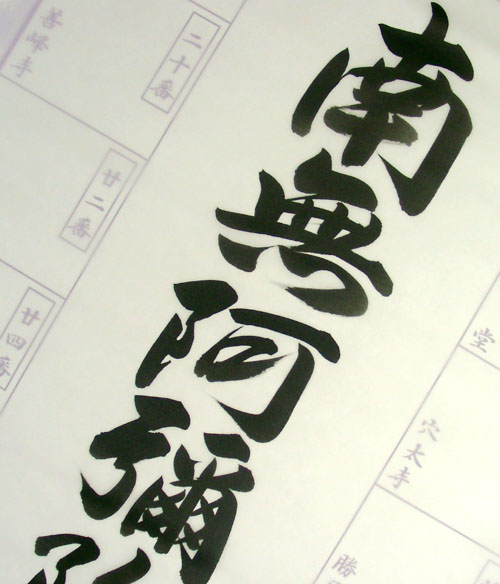 南無阿彌
二十番
善峰寺
廿二番
廿四番
堂
穴太寺
勝